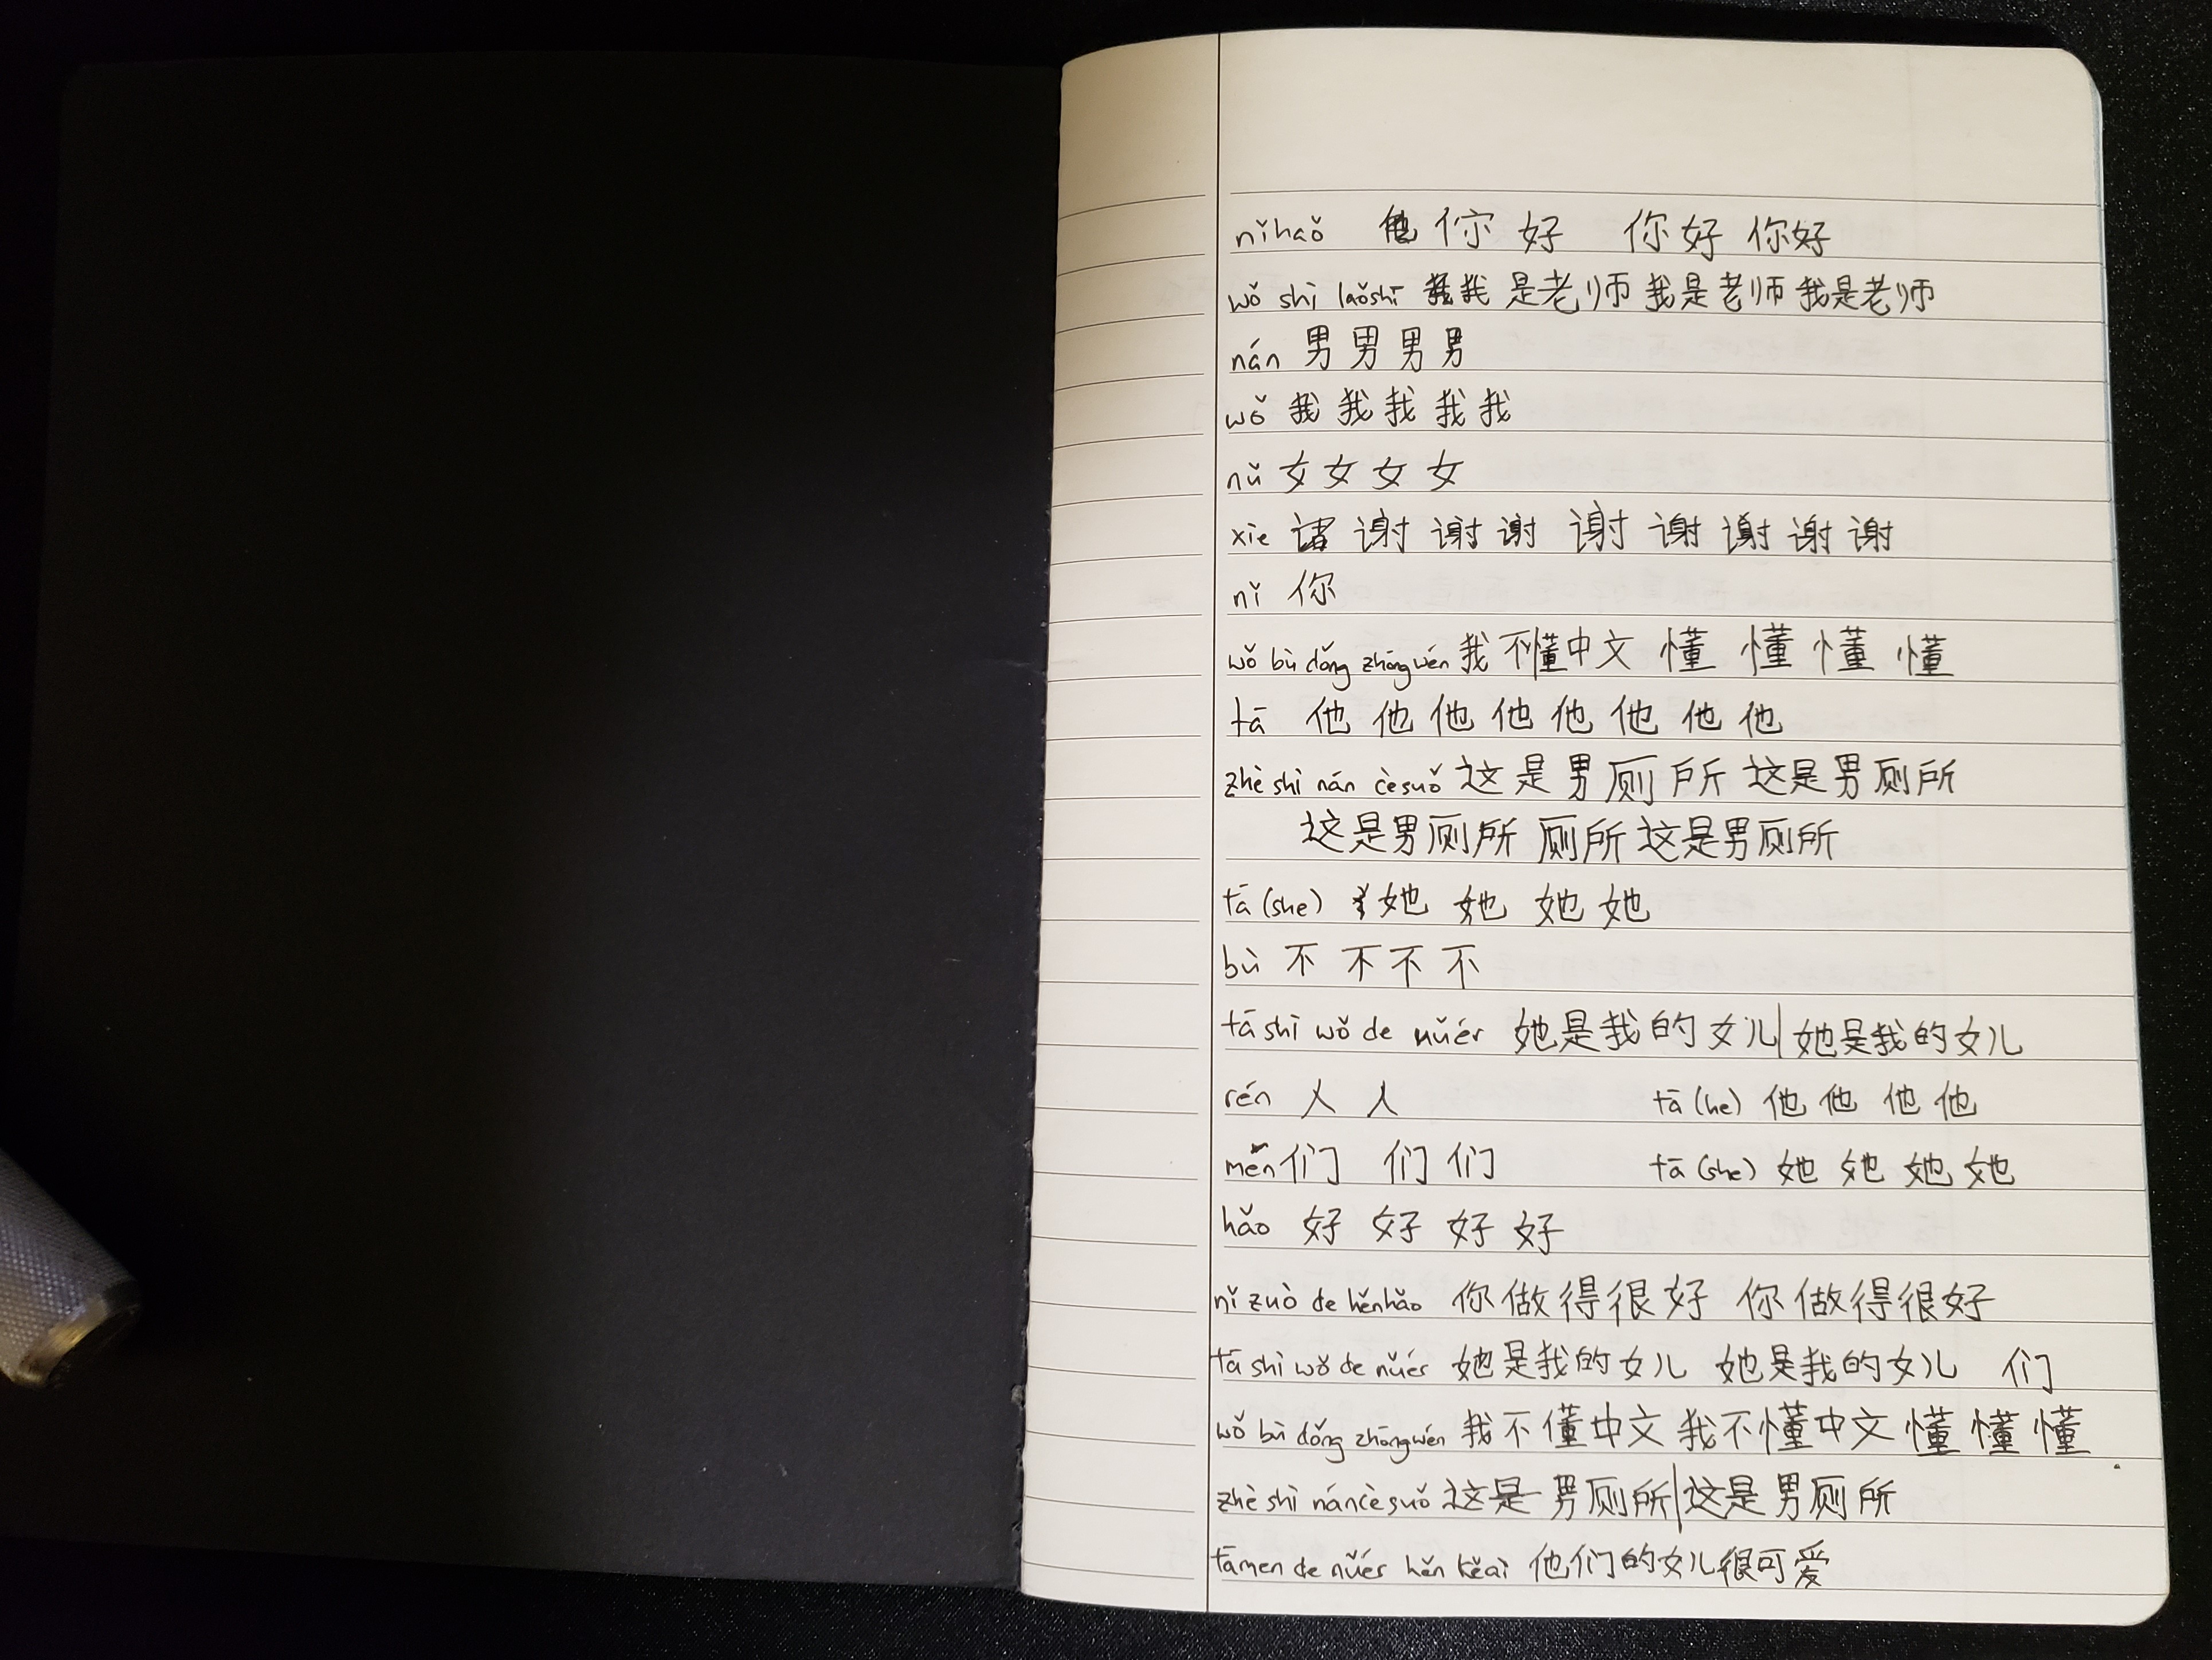 nǐhaǒ 你好 你好 你好
wǒ shì laǒshī 我是老师 我是老师 我是老师
nán 男 男 男 男
wǒ 我 我 我 我 我
nǚ 女 女 女 女
xie 谢 谢 谢 谢 谢 谢 谢 谢
nǐ 你
wǒ bù dǒng zhōngwén 我不懂中文 懂 懂 懂 懂
tā 他 他 他 他 他 他 他 他
zhè shì nán cèsuǒ 这是男厕所 这是男厕所
这是男厕所 厕所 这是男厕所
tā (she) 她 她 她 她
bù 不 不 不 不
tā shì wǒ de nǚér 她是我的女儿|她是我的女儿
rén 人 人 tā (he) 他 他 他 他
mén 们 们 们 tā (she) 她 她 她 她
hǎo 好 好 好 好
nǐ zuò de hěnhǎo 你做得很好 你做得很好
tā shì wǒ de nǚér 她是我的女儿 她是我的女儿 们
wǒ bù dǒng zhōngwén 我不懂中文 我不懂中文 懂 懂 懂
zhè shì náncèsuǒ 这是男厕所|这是男厕所
tāmen de nǚér hěn kěaì 他们的女儿很可爱